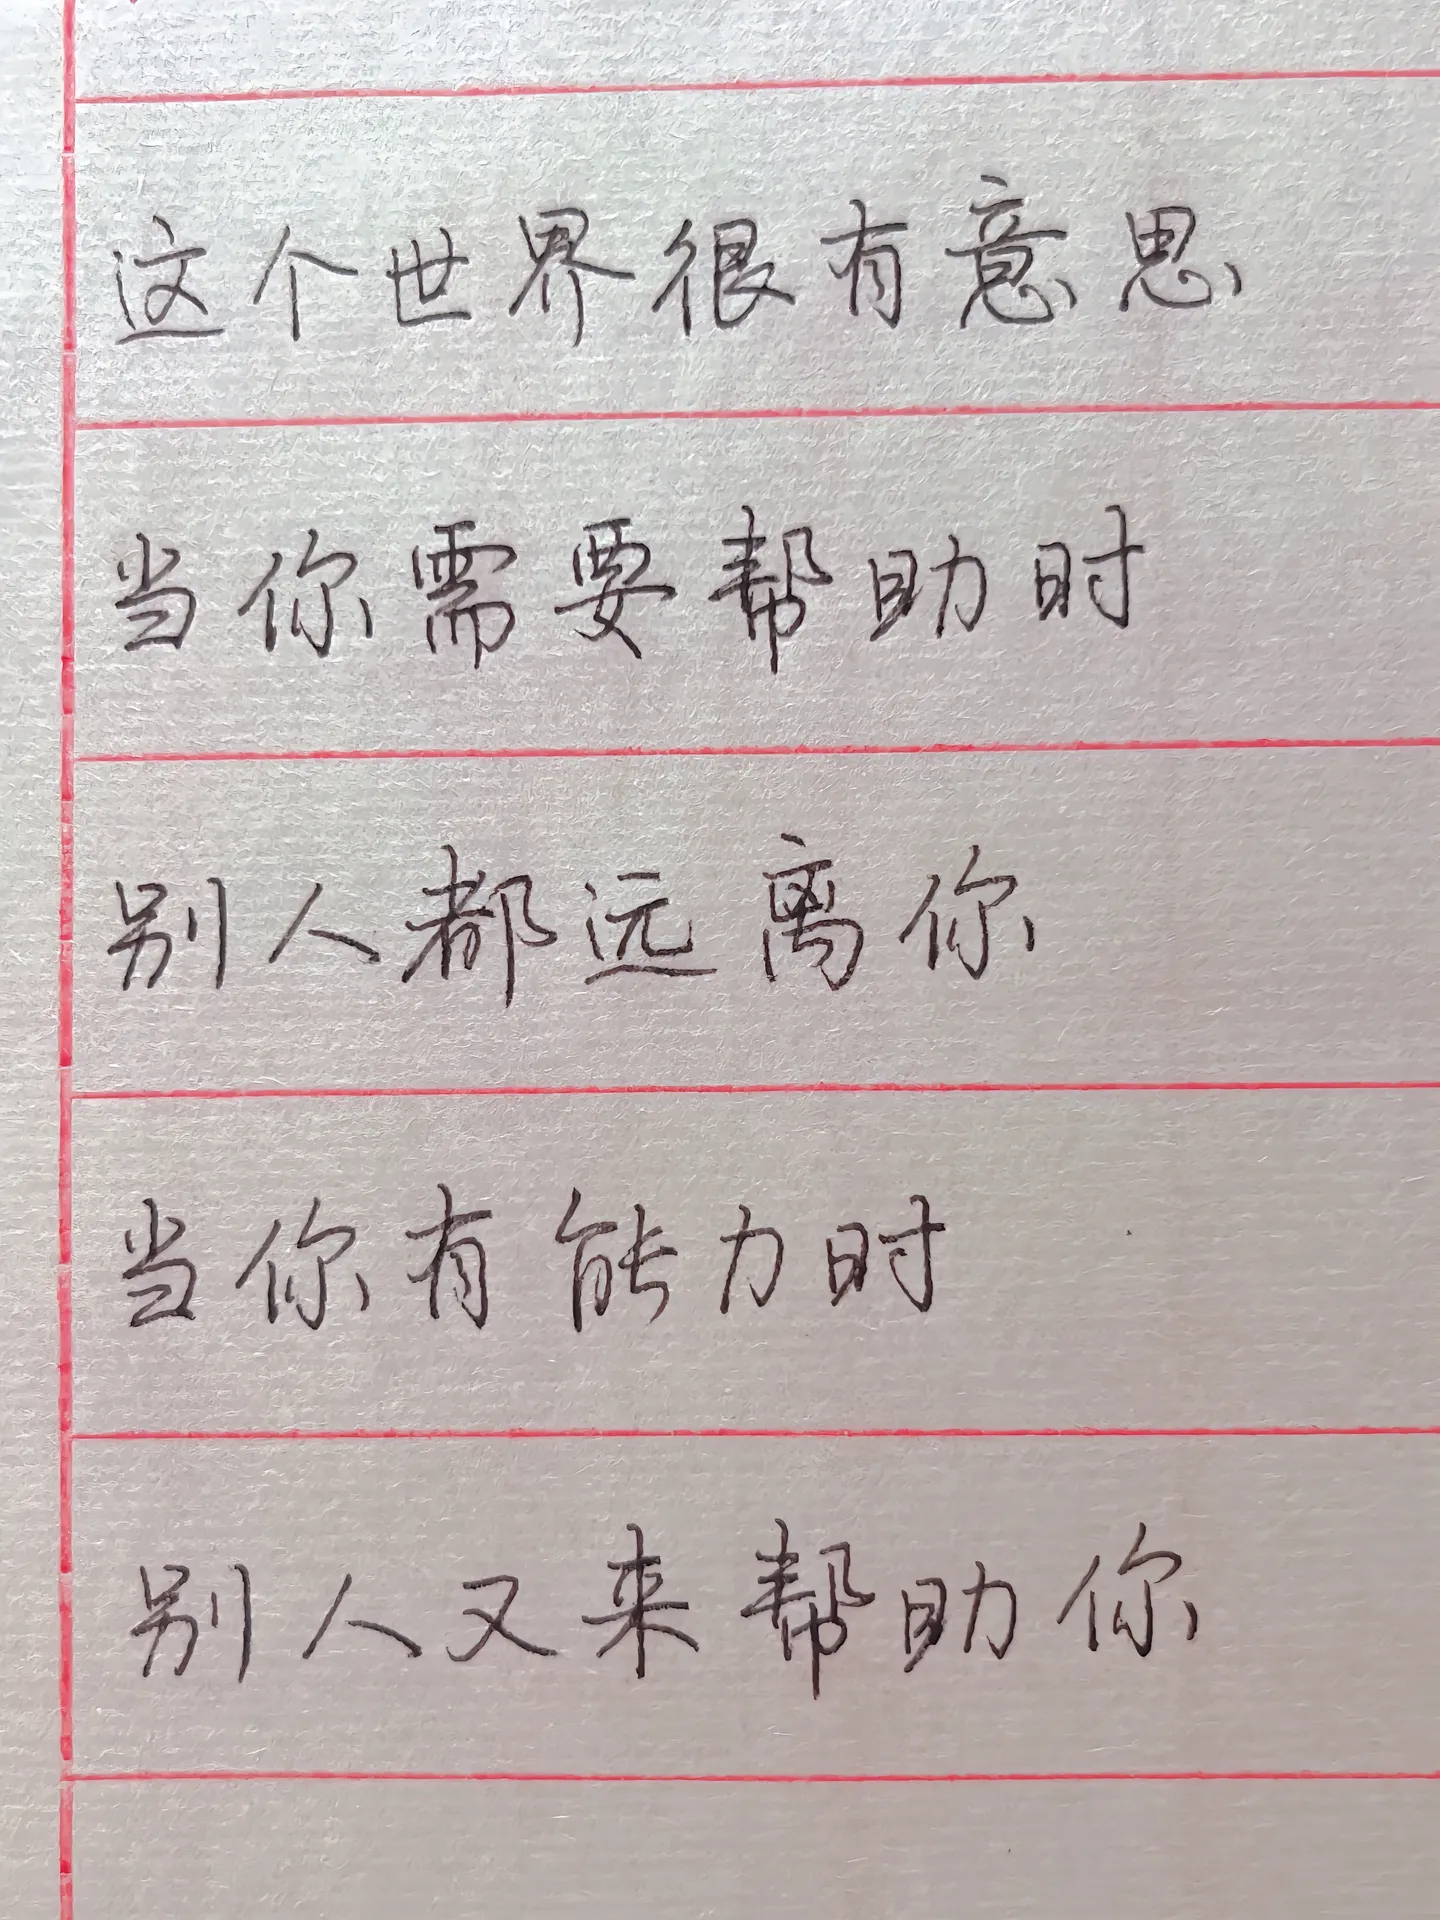 这个世界很有意思
当你需要帮助时
别人都远离你
当你有能力时
别人又来帮助你